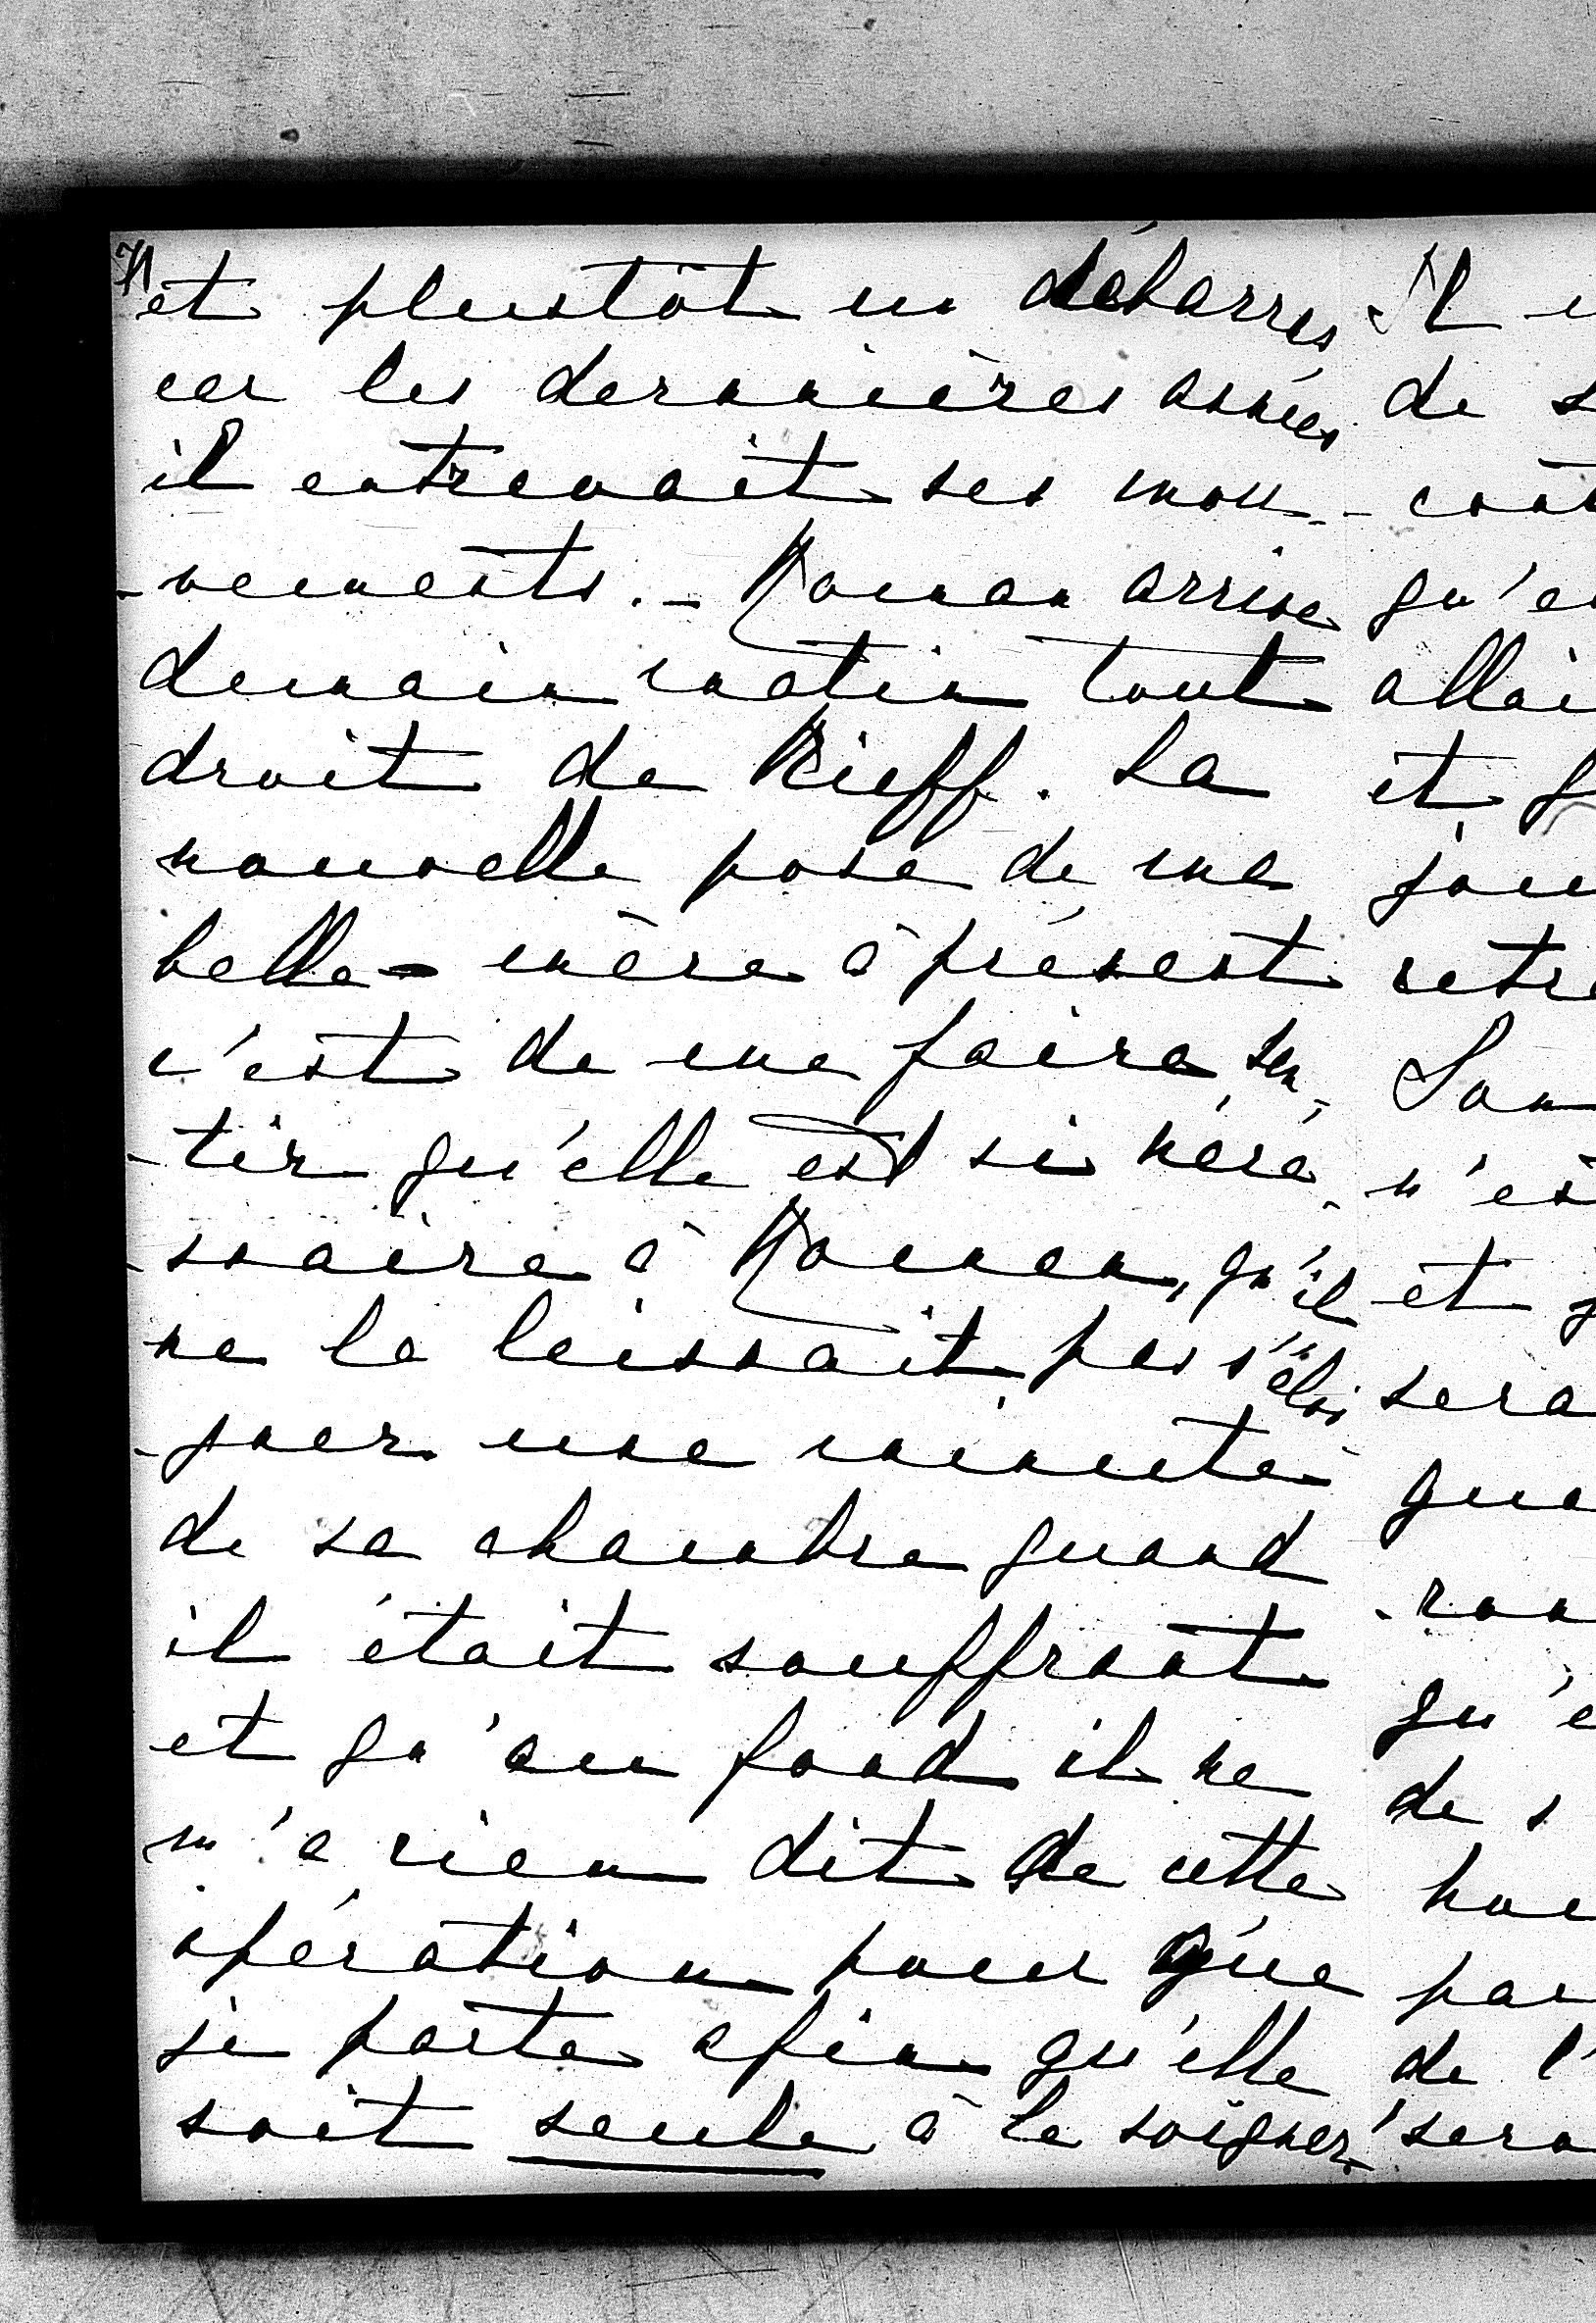 7)
et plustôt un débarres
car les dernières années
il entravait ses mou-
-vements. - Roman arrive
demain matin tout
droit de Kieff. La
nouvelle pose de ma
belle-mère à présent
c'est de me faire sen-
-tir qu'elle est si néce-
-ssaire à Roman, qu'il
ne la laissait pas s'éloi
-gner une minute
de sa chambre quand
il était souffrant
et qu'au fond il ne
m'a rien dit de cette
opération pour que
je parte afin qu'elle
soit seule à le soigner.
Il
de s
- coût
qu'e
allai
et
jou
retr
Son
n'es
et
sera
qua
-ran
qu'e
de s
par
de l'
sera